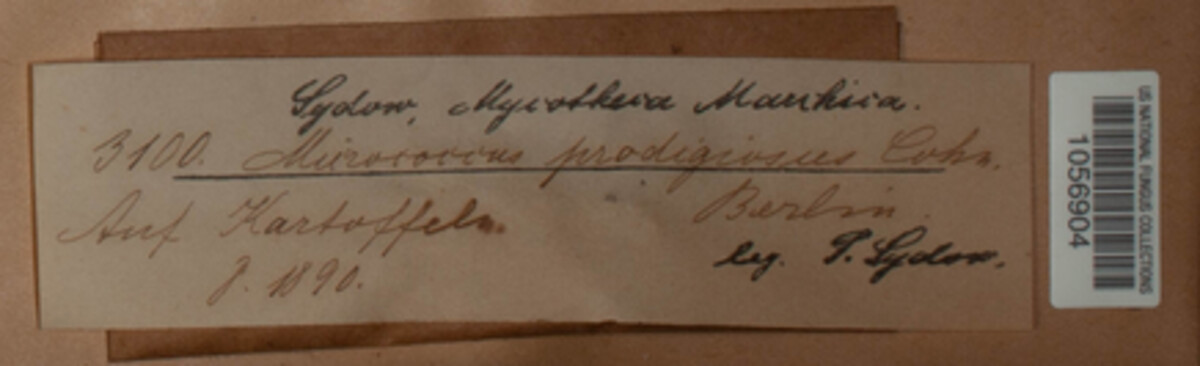 Sydow, Mycotheca Marchica.
3100. Micrococcus prodigiosus Cohn.
Auf Kartoffeln. Berlin.
leg. P. Sydow.
8. 1890.
US NATIONAL FUNGUS COLLECTIONS
1056904